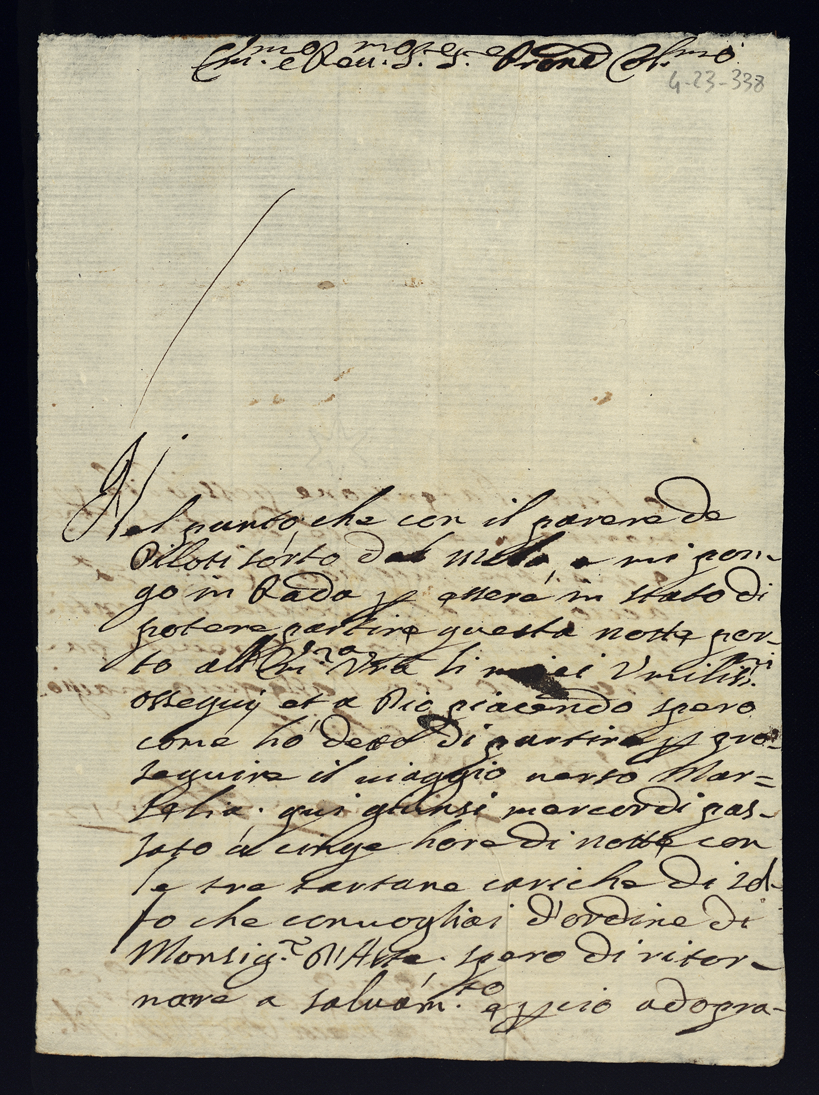 Ill.mo e Rev.mo Sig.re Sig.re e Prone Col.mo
4-23-338
Nel punto, che con il parere de
Piloti sorto dal Molo, e mi pon-
go in Rada p essere in stato di
potere partire questa notte por-
to all'Ill.ma Vra li miei Umiliss.mi
ossequij et a Dio piacendo spero
come hò detto di partire p pro-
seguire il viaggio verso Mar-
selia. qui giunsi mercordi pas-
sato à cinqe hore di notte con
le tre tartane cariche di sol-
fo che convogliai d'ordine di
Monsig.r
spero di ritor-
nare a salvam.to e p ciò adopra-